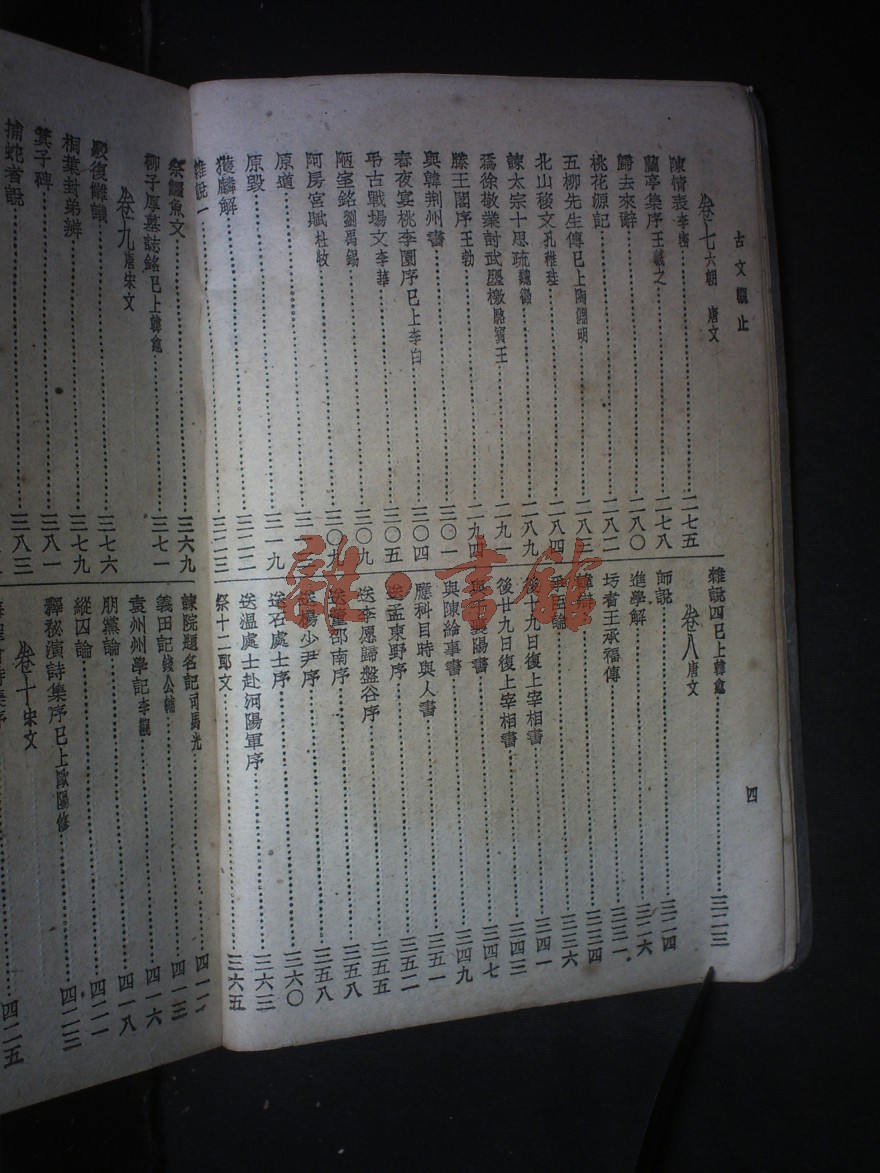 古文觀止
卷七 六朝 唐文
陳情表 李密 二七五
蘭亭集序 王羲之 二七八
歸去來辭 二八〇
桃花源記 二八二
五柳先生傳 已上陶淵明 二八三
北山移文 孔稚珪 二八四
諫太宗十思疏 魏徵 二八九
為徐敬業討武曌檄 駱賓王 二九一
滕王閣序 王勃 二九四
與韓荆州書 三〇一
春夜宴桃李園序 已上李白 三〇四
弔古戰場文 李華 三〇五
陋室銘 劉禹錫 三〇九
阿房宮賦 杜牧 三〇九
原道
原毀 三一九
獲麟解 三二二
雜說一 三二三
雜說四 已上韓愈 三二三
卷八 唐文
師說 三二四
進學解 三二六
圬者王承福傳 三三一
諱辯 三三四
爭臣論 三三六
後十九日復上宰相書 三四一
後廿九日復上宰相書 三四三
與于襄陽書 三四七
與陳給事書 三四九
應科目時與人書 三五一
送孟東野序 三五二
送李愿歸盤谷序 三五五
送董邵南序 三五八
送楊少尹序 三五八
送石處士序 三六〇
送温處士赴河陽軍序 三六三
祭十二郎文 三六五
四
祭鱷魚文 三六九
柳子厚墓誌銘 已上韓愈 三七一
卷九 唐宋文
駁復讎議 三七六
桐葉封弟辨 三七九
箕子碑 三八一
捕蛇者說 三八三
諫院題名記 司馬光 四一二
義田記 錢公輔 四一三
袁州州學記 李覯 四一六
朋黨論 四一八
縱囚論 四二一
釋祕演詩集序 已上歐陽修 四二三
卷十 宋文
四二五
雜·書館